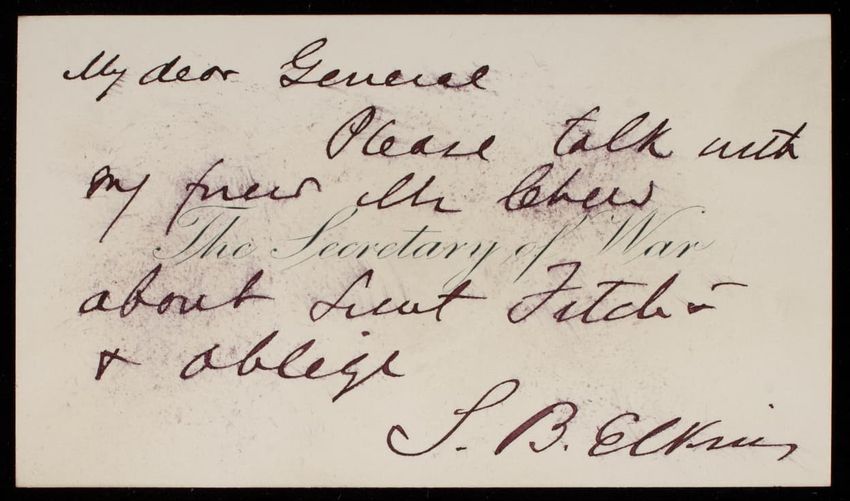 My dear General
Please talk with
my friend Mr Chew
The Secretary of War
about Lieut Fitch &
& oblige
S. B. Elkins